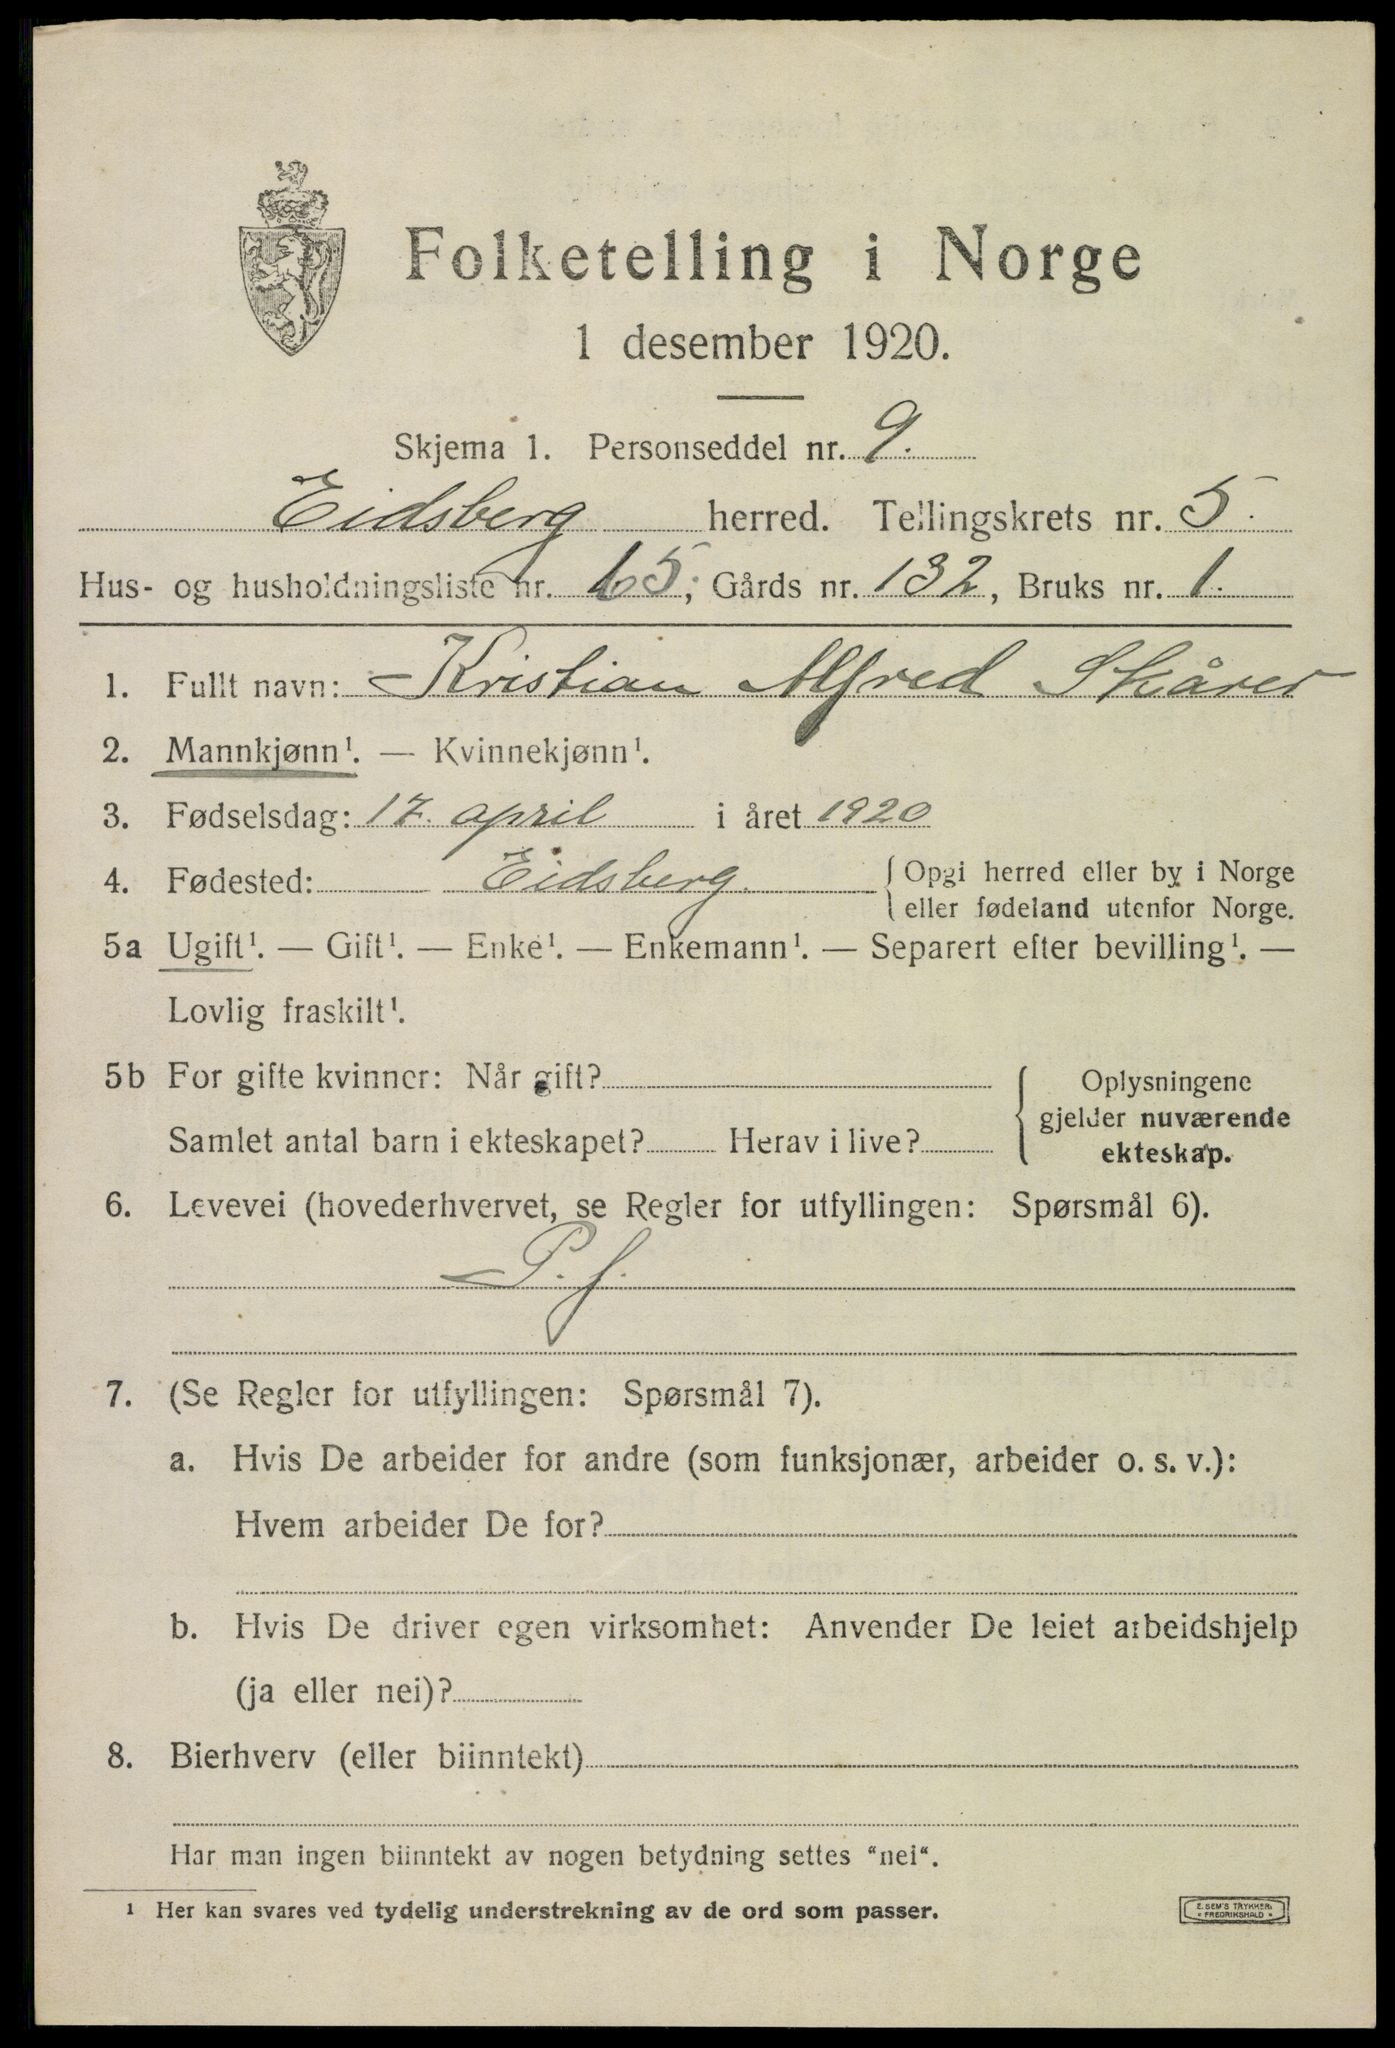 Folketelling i Norge
1 desember 1920.
Skjema 1. Personseddel nr. 9.
Eidsberg herred. Tellingskrets nr. 5.
Hus- og husholdningsliste nr. 65; Gårds nr. 132, Bruks nr. 1.
1. Fullt navn: Kristian Alfred Skårer
2. Mannkjønn¹. — Kvinnekjønn¹.
3. Fødselsdag: 17. april i året 1920
4. Fødested: Eidsberg. { Opgi herred eller by i Norge
eller fødeland utenfor Norge.
5a Ugift¹. — Gift¹. — Enke¹. — Enkemann¹. — Separert efter bevilling¹. —
Lovlig fraskilt¹.
5b For gifte kvinner: Når gift? { Oplysningene
gjelder nuværende
Samlet antal barn i ekteskapet? Herav i live?
ekteskap.
6. Levevei (hovederhvervet, se Regler for utfyllingen: Spørsmål 6).
P. f.
7. (Se Regler for utfyllingen: Spørsmål 7).
a. Hvis De arbeider for andre (som funksjonær, arbeider o. s. v.):
Hvem arbeider De for?
b. Hvis De driver egen virksomhet: Anvender De leiet arbeidshjelp
(ja eller nei)?
8. Bierhverv (eller biinntekt)
Har man ingen biinntekt av nogen betydning settes "nei".
¹ Her kan svares ved tydelig understrekning av de ord som passer.
E. SEM'S TRYKKERI
FREDRIKSHALD